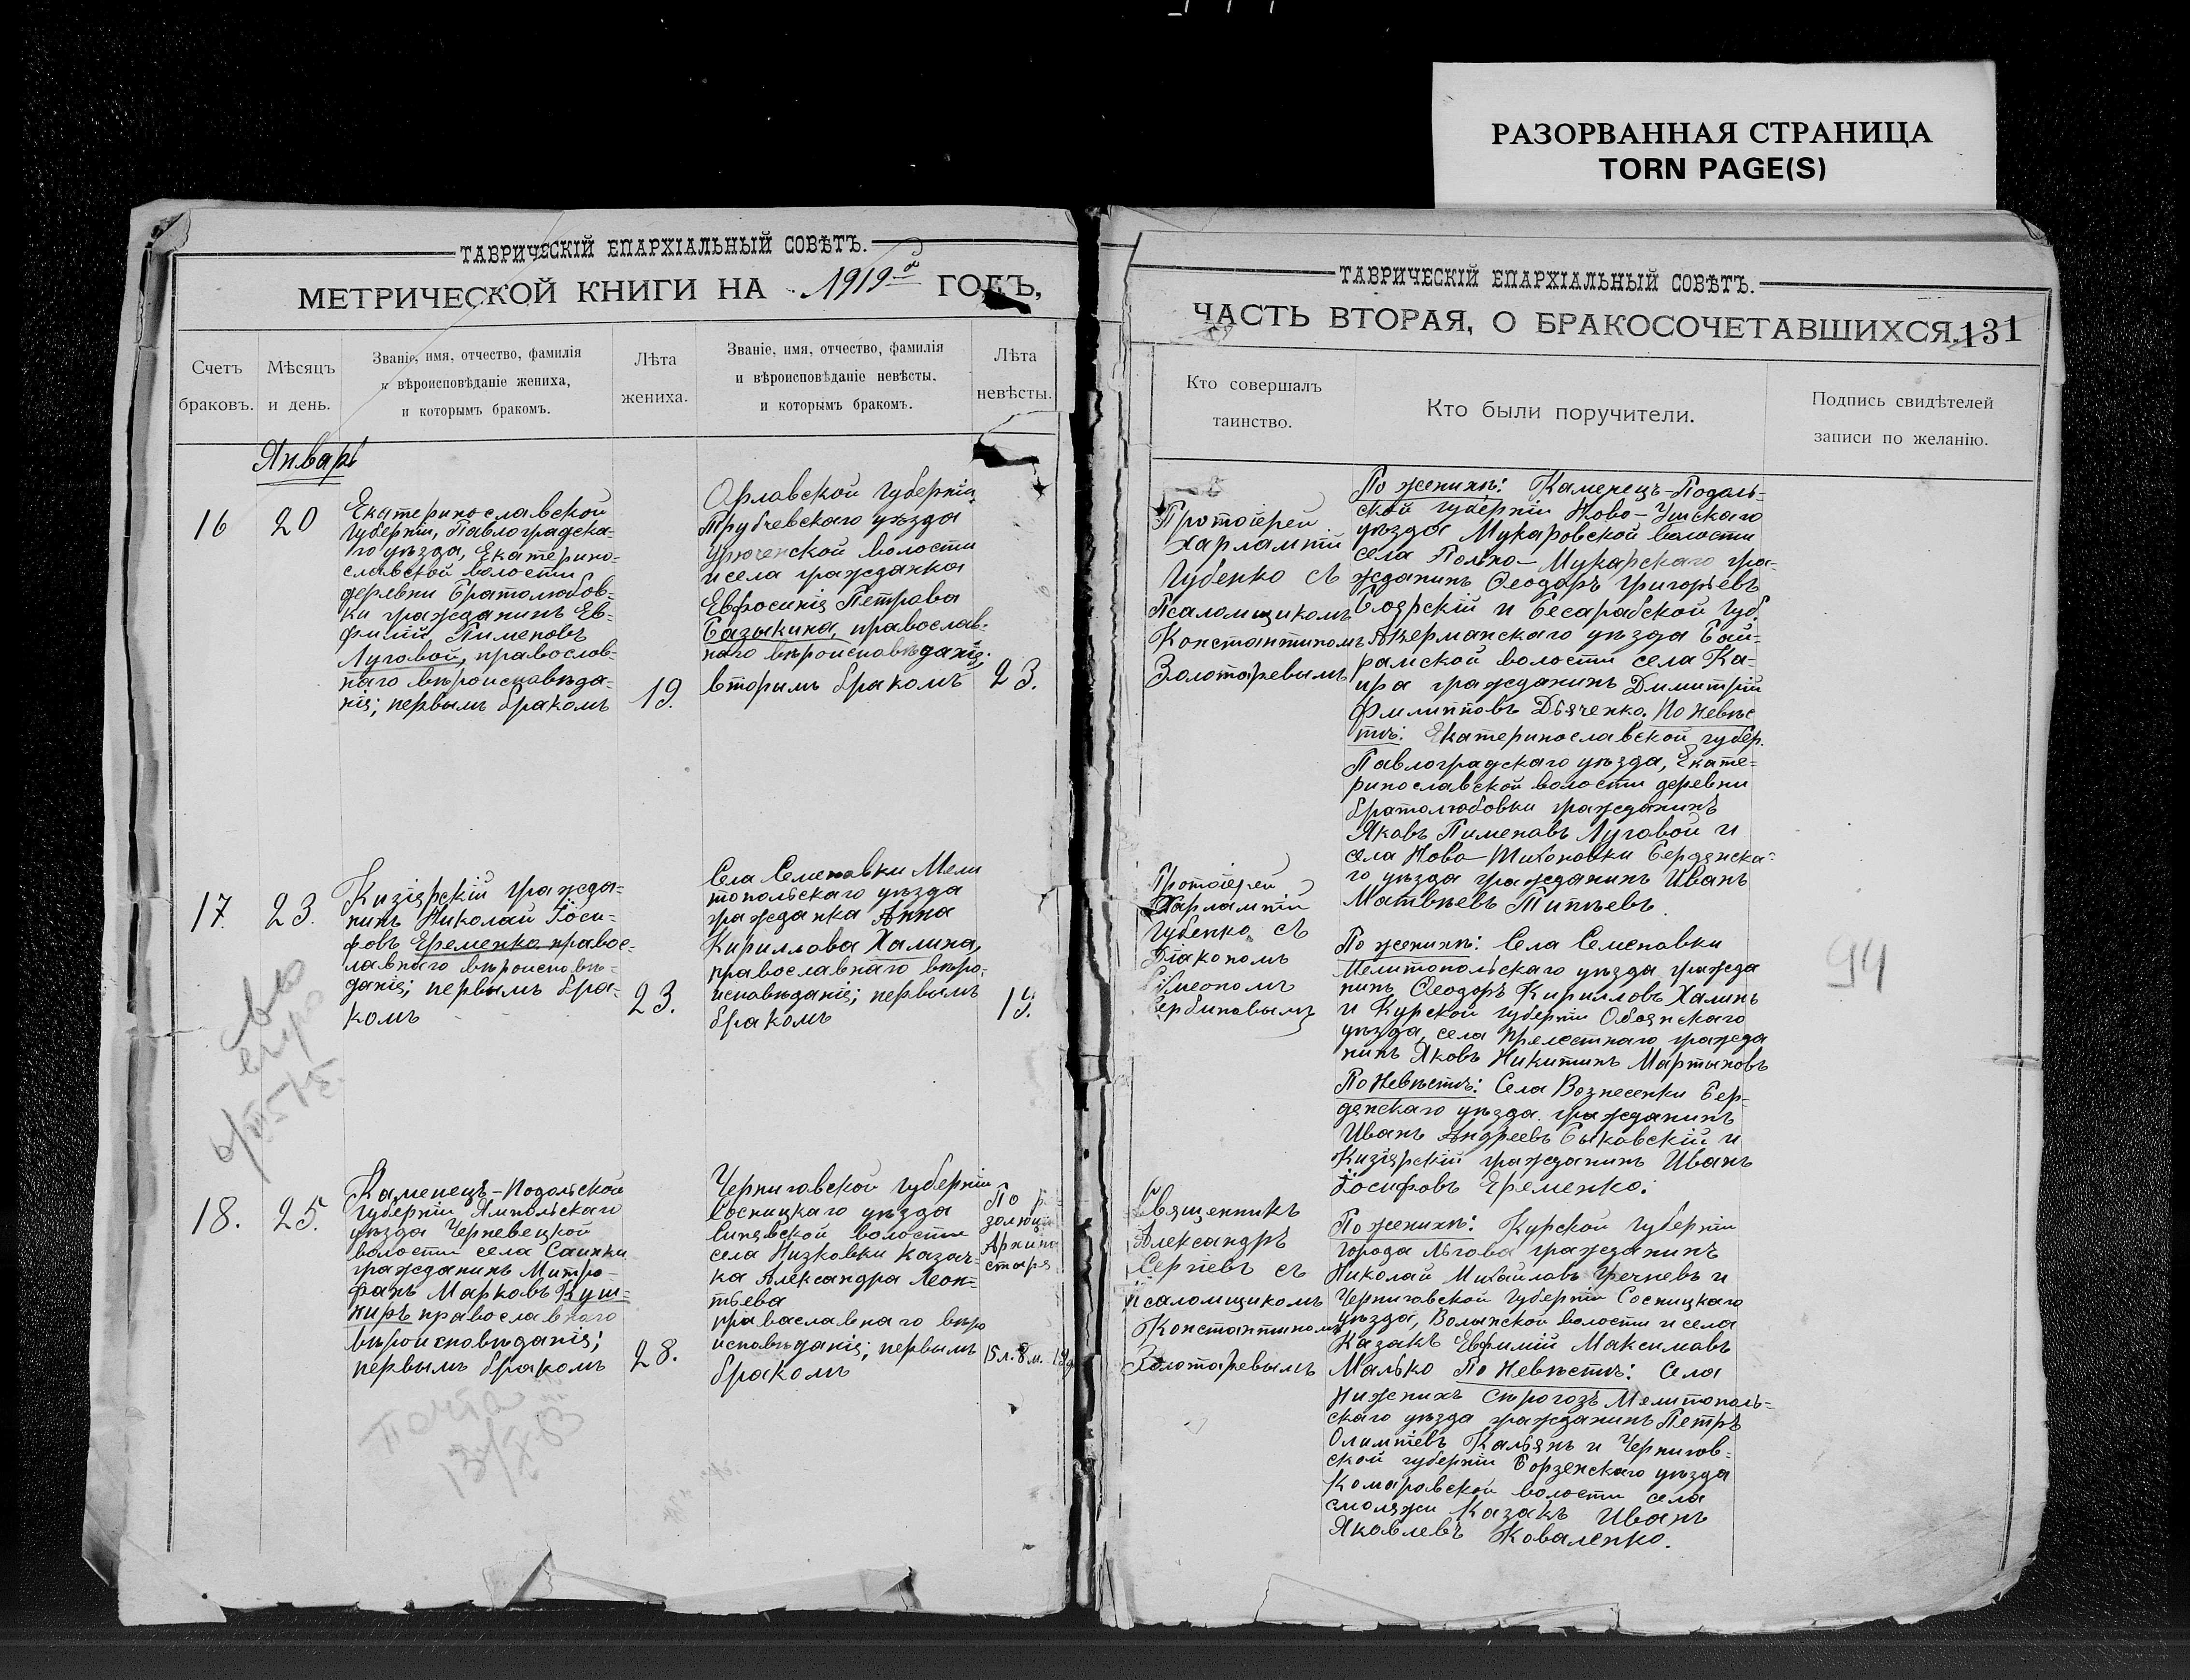 РАЗОРВАННАЯ СТРАНИЦА
TORN PAGE(S)
ТАВРИЧЕСКІЙ ЕПАРХІАЛЬНЫЙ СОВѢТЪ.
МЕТРИЧЕСКОЙ КНИГИ НА 1919 ГОДЪ,
Счетъ браковъ.
Мѣсяцъ и день.
Званіе, имя, отчество, фамилія
и вѣроисповѣданіе жениха,
и которымъ бракомъ.
Лѣта жениха.
Званіе, имя, отчество, фамилія
и вѣроисповѣданіе невѣсты,
и которымъ бракомъ.
Лѣта невѣсты.
Январь
16
20
Екатеринославской
губерніи, Павлоградска-
го уѣзда, Екатерино-
славской волости
деревни Братолюбов-
ки гражданинъ Ев-
фимій Пименовъ
Луговой, православ-
наго вѣроисповѣда-
нія; первымъ бракомъ
19.
Орловской губерніи
Трубчевскаго уѣзда
волости
и села гражданка
Евфросинія Петрова
Базыкина, православ-
наго вѣроисповѣданія;
вторымъ бракомъ
23.
17.
23.
Кизіярскій гражда-
нинъ Николай Іоси-
фовъ Еременко правос-
лавнаго вѣроисповѣ-
данія; первымъ бра-
комъ
23.
Села Семеновки Мели
топольскаго уѣзда
гражданка Анна
Кириллова Халина,
православнаго вѣро-
исповѣданія; первымъ
бракомъ
19.
18.
25.
Каменецъ-Подольской
губерніи Ямпольскаго
уѣзда Черневецкой
волости села Саинки
гражданинъ Митро-
фанъ Марковъ Куш-
ниръ православнаго
вѣроисповѣданія;
первымъ бракомъ
28.
Черниговской губерніи
Сосницкаго уѣзда
Синявской волости
села Низковки казач-
ка Александра Леон-
тьева
православнаго вѣро
исповѣданія; первымъ
бракомъ
По р
золюціи
Архипа
стыря
15 л. 8 м.
ТАВРИЧЕСКІЙ ЕПАРХІАЛЬНЫЙ СОВѢТЪ.
ЧАСТЬ ВТОРАЯ, О БРАКОСОЧЕТАВШИХСЯ.
131
Кто совершалъ таинство.
Кто были поручители.
Подпись свидѣтелей
записи по желанію.
Протоіерей
Харлампій
Губенко съ
Псаломщикомъ
Константиномъ
Золотаревымъ
По женихѣ: Каменецъ-Подоль-
ской губерніи Ново-Ушскаго
уѣзда Мукаровской волости
села Польно-Мукарскаго гра-
жданинъ Ѳеодоръ Григорьевъ
Боярскій и Бесарабской губ.
Акерманскаго уѣзда Бай-
рамской волости села Ка-
ира гражданинъ Димитрій
Филипповъ Дьяченко. По невѣс
тѣ: Екатеринославской губер.
Павлоградскаго уѣзда, Екате-
ринославской волости деревни
Братолюбовки гражданинъ
Яковъ Пименовъ Луговой и
села Ново-Тихоновки Бердянска-
го уѣзда гражданинъ Иванъ
Матвѣевъ Типѣевъ.
Протоіерей
Харлампій
Губенко съ
Діакономъ
Симеономъ
Сербиновымъ
По женихѣ: Села Семеновки
Мелитопольскаго уѣзда гражда
нинъ Ѳеодоръ Кирилловъ Халинъ
и Курской губерніи Обоянскаго
уѣзда, села Прелестнаго гражда
нинъ Яковъ Никитинъ Мартыновъ
По Невѣстѣ: Села Вознесенки Бер-
дянскаго уѣзда гражданинъ
Иванъ Андреевъ Быковскій и
Кизіярскій гражданинъ Иванъ
Іосифовъ Еременко.
94
Священникъ
Александръ
Сергіевъ съ
псаломщикомъ
Константиномъ
Золотаревымъ
По женихѣ: Курской губерніи
города Льгова гражданинъ
Николай Михайловъ Гречневъ и
Черниговской губерніи Сосницкаго
уѣзда, Волынской волости и села
Казакъ Евфимій Максимовъ
Малько По Невѣстѣ: Села
Нижнихъ Строгозъ Мелитополь-
скаго уѣзда гражданинъ Петръ
Олимпіевъ Кальянъ и Чернигов-
ской губерніи Борзенскаго уѣзда
Комаровской волости села
Смоляжи Казакъ Иванъ
Яковлевъ Коваленко.